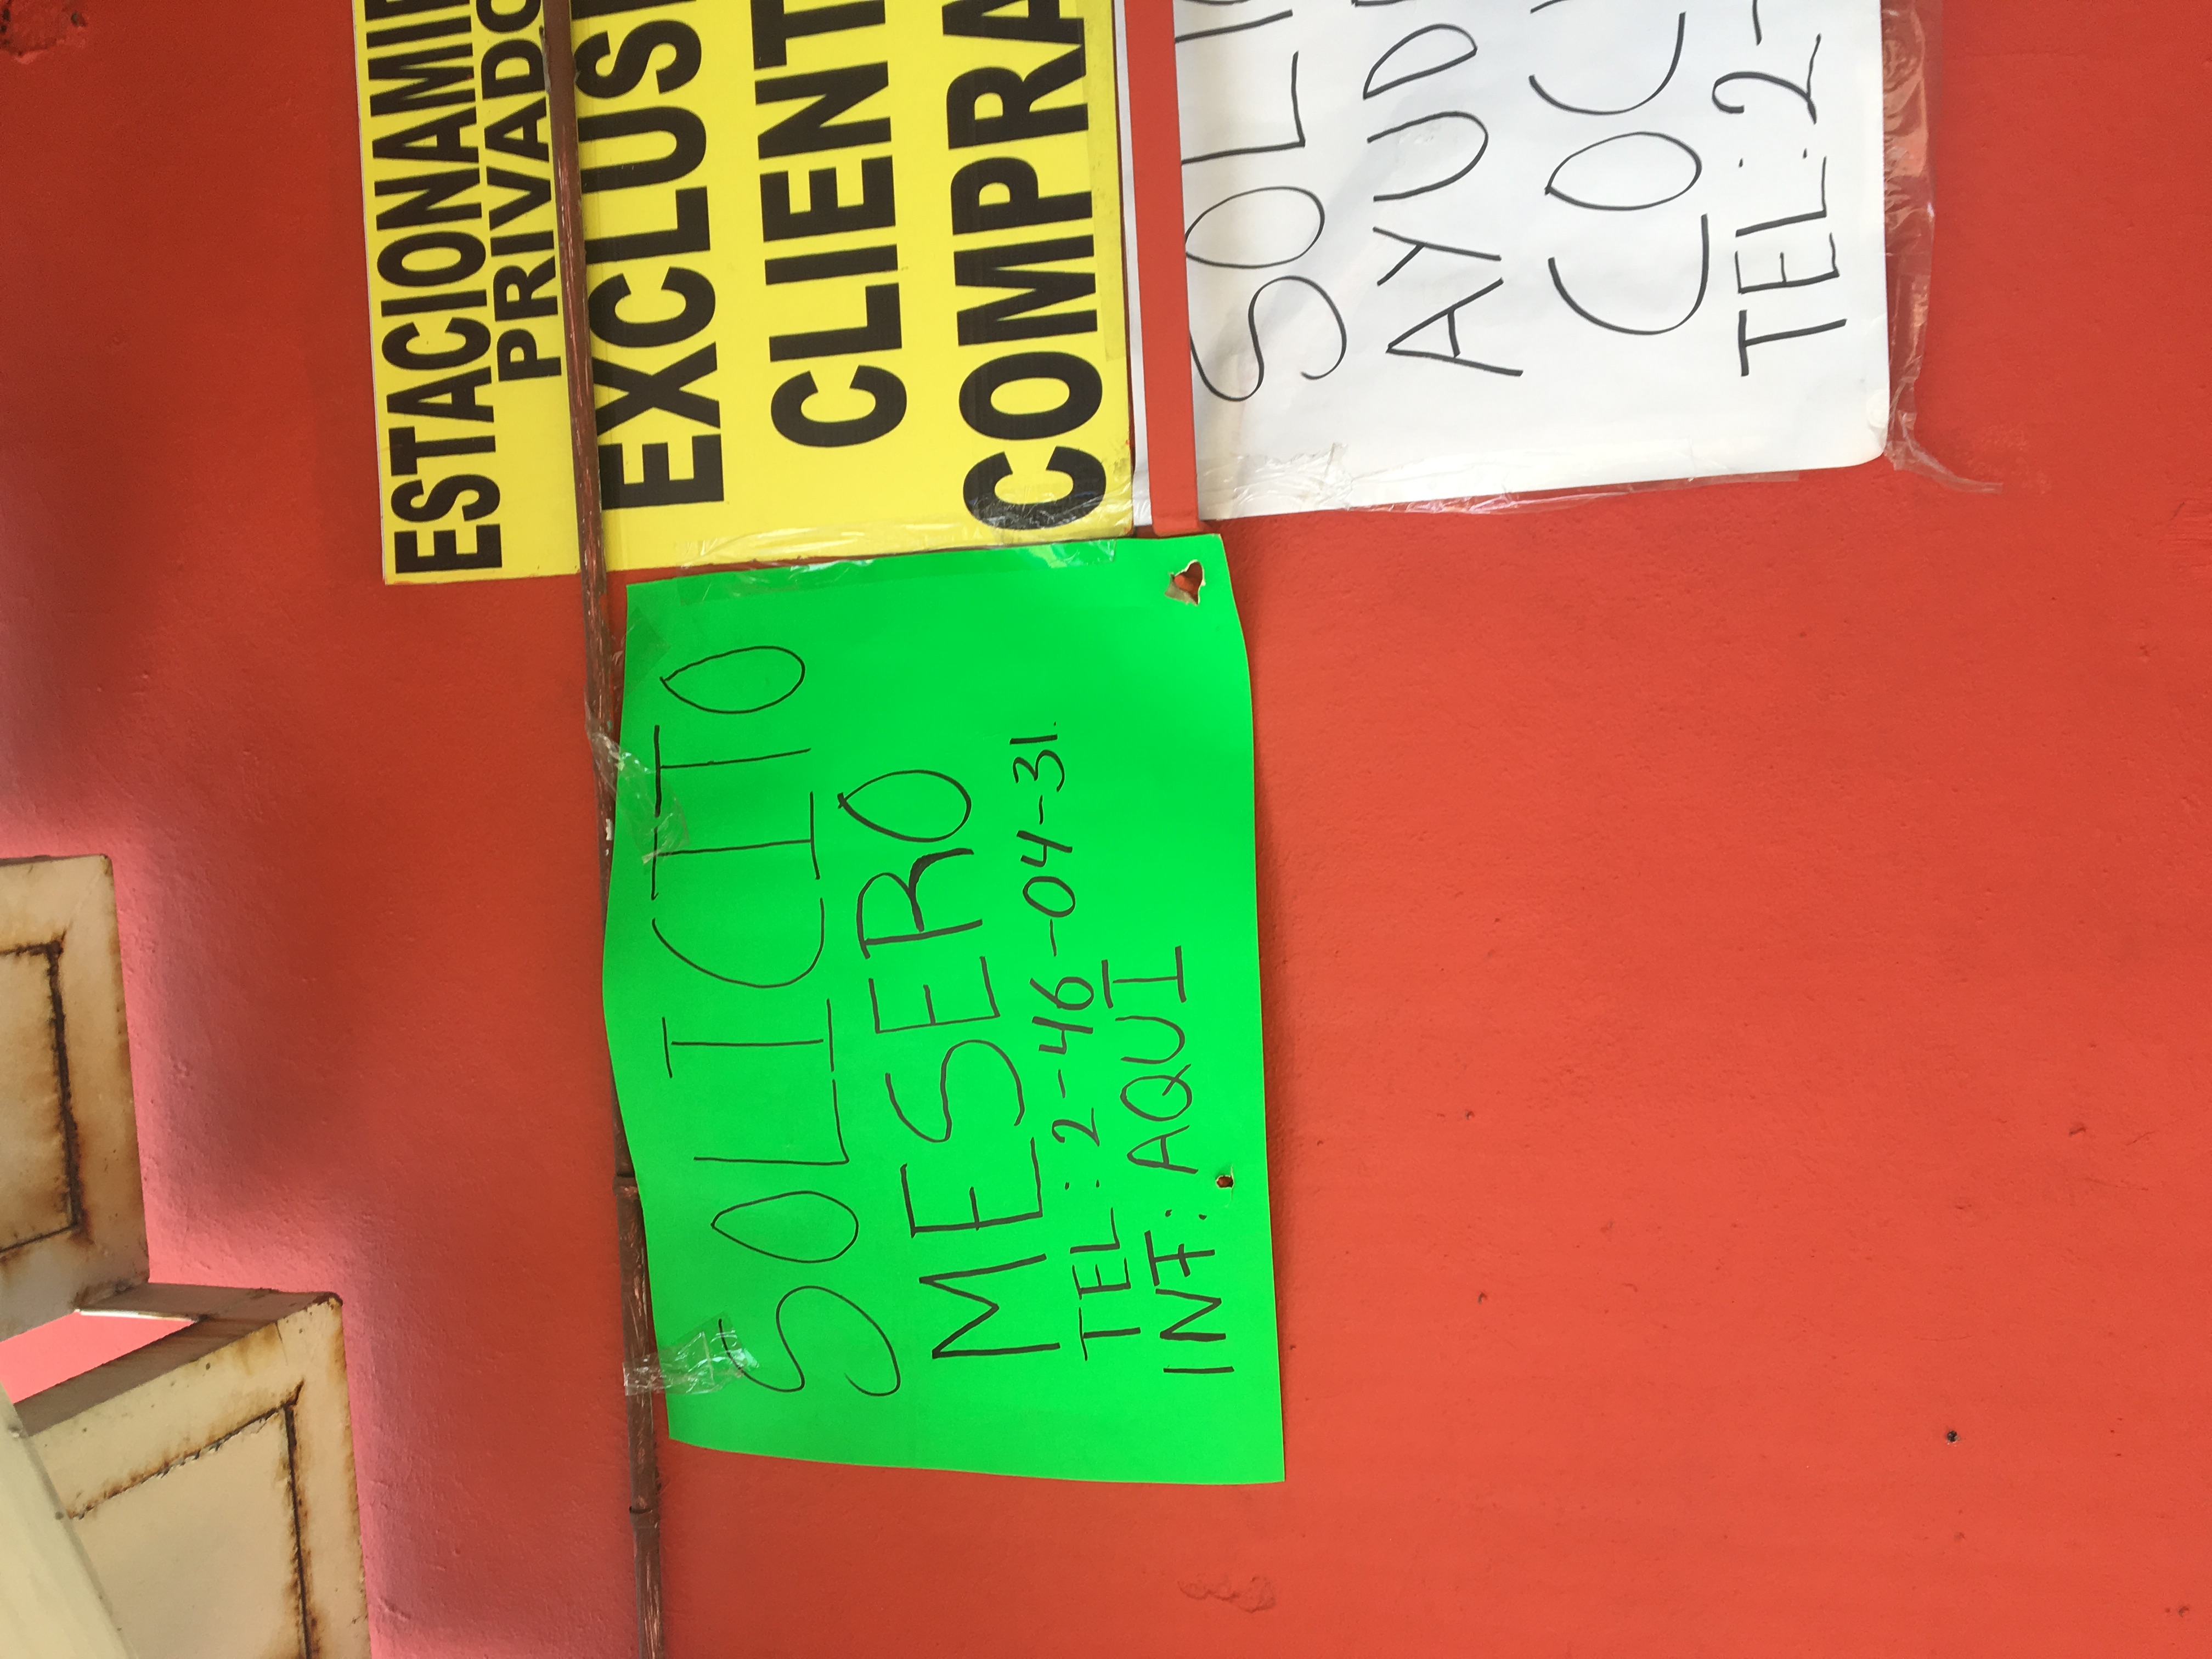 SOLICITO
MESERO
TEL: 2-46-04-31.
INF: AQUI
ESTACIONAMIE
PRIVADO
EXCLUSI
CLIENT
COMPRA
SOLIC
AYUD
COCI
TEL: 2-